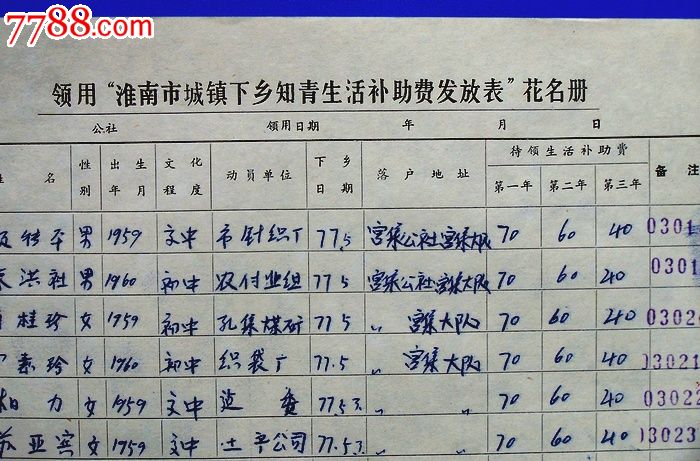 7788.com
领用“淮南市城镇下乡知青生活补助费发放表”花名册
公社 领用日期 年 月 日
姓 名 性别 出生年月 文化程度 动员单位 下乡日期 落户地址 待领生活补助费 备注
第一年 第二年 第三年
男 1959 文中 市针织厂 77.5 宫集公社宫集大队 70 60 40 0301
洪社 男 1960 初中 农付业组 77.5 宫集公社宫集大队 70 60 40 0301
桂珍 女 1959 初中 孔集煤矿 77.5 〃 宫集大队 70 60 40 0302
素玲 女 1960 初中 织袋厂 77.5 〃 宫集大队 70 60 40 03021
柏力 女 1959 文中 77.5.3. 〃 70 60 40 03022
苏亚宾 女 1959 文中 土产公司 77.5.3. 〃 70 60 40 03023